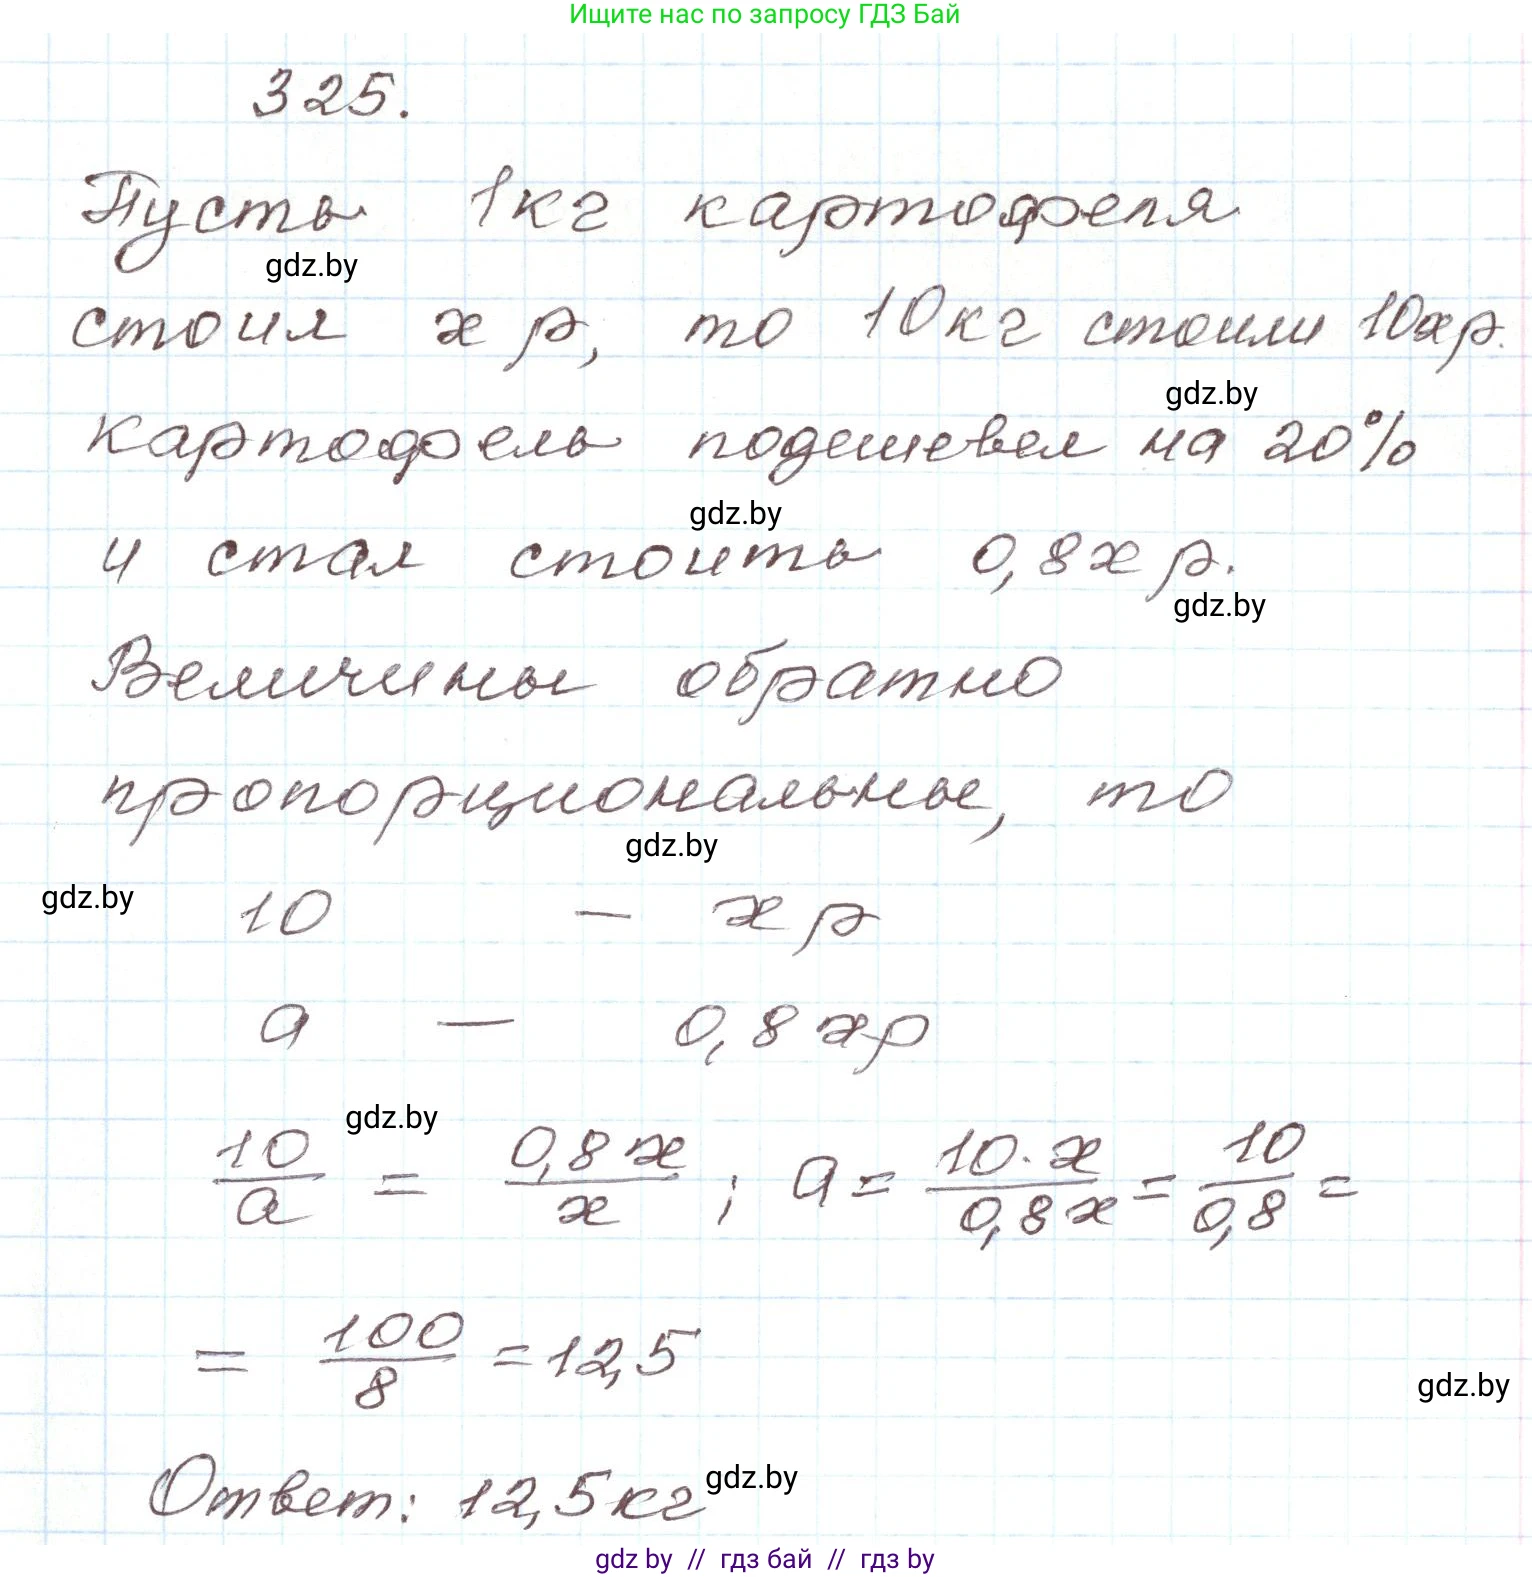 Ищите нас по запросу ГДЗ Бай
325.
Пусть 1кг картофеля
gdz.by
стоил х р, то 10кг стоили 10хр.
gdz.by
картофель подешевел на 20%
gdz.by
и стал стоить 0,8х р.
gdz.by
Величины обратно
пропорциональны, то
gdz.by
gdz.by
10 – х р
а – 0,8 хр
gdz.by
10/а = 0,8х/х ; а = 10·х/0,8х = 10/0,8 =
= 100/8 = 12,5
gdz.by
Ответ: 12,5кг
gdz.by
gdz by // гдз бай // гдз by